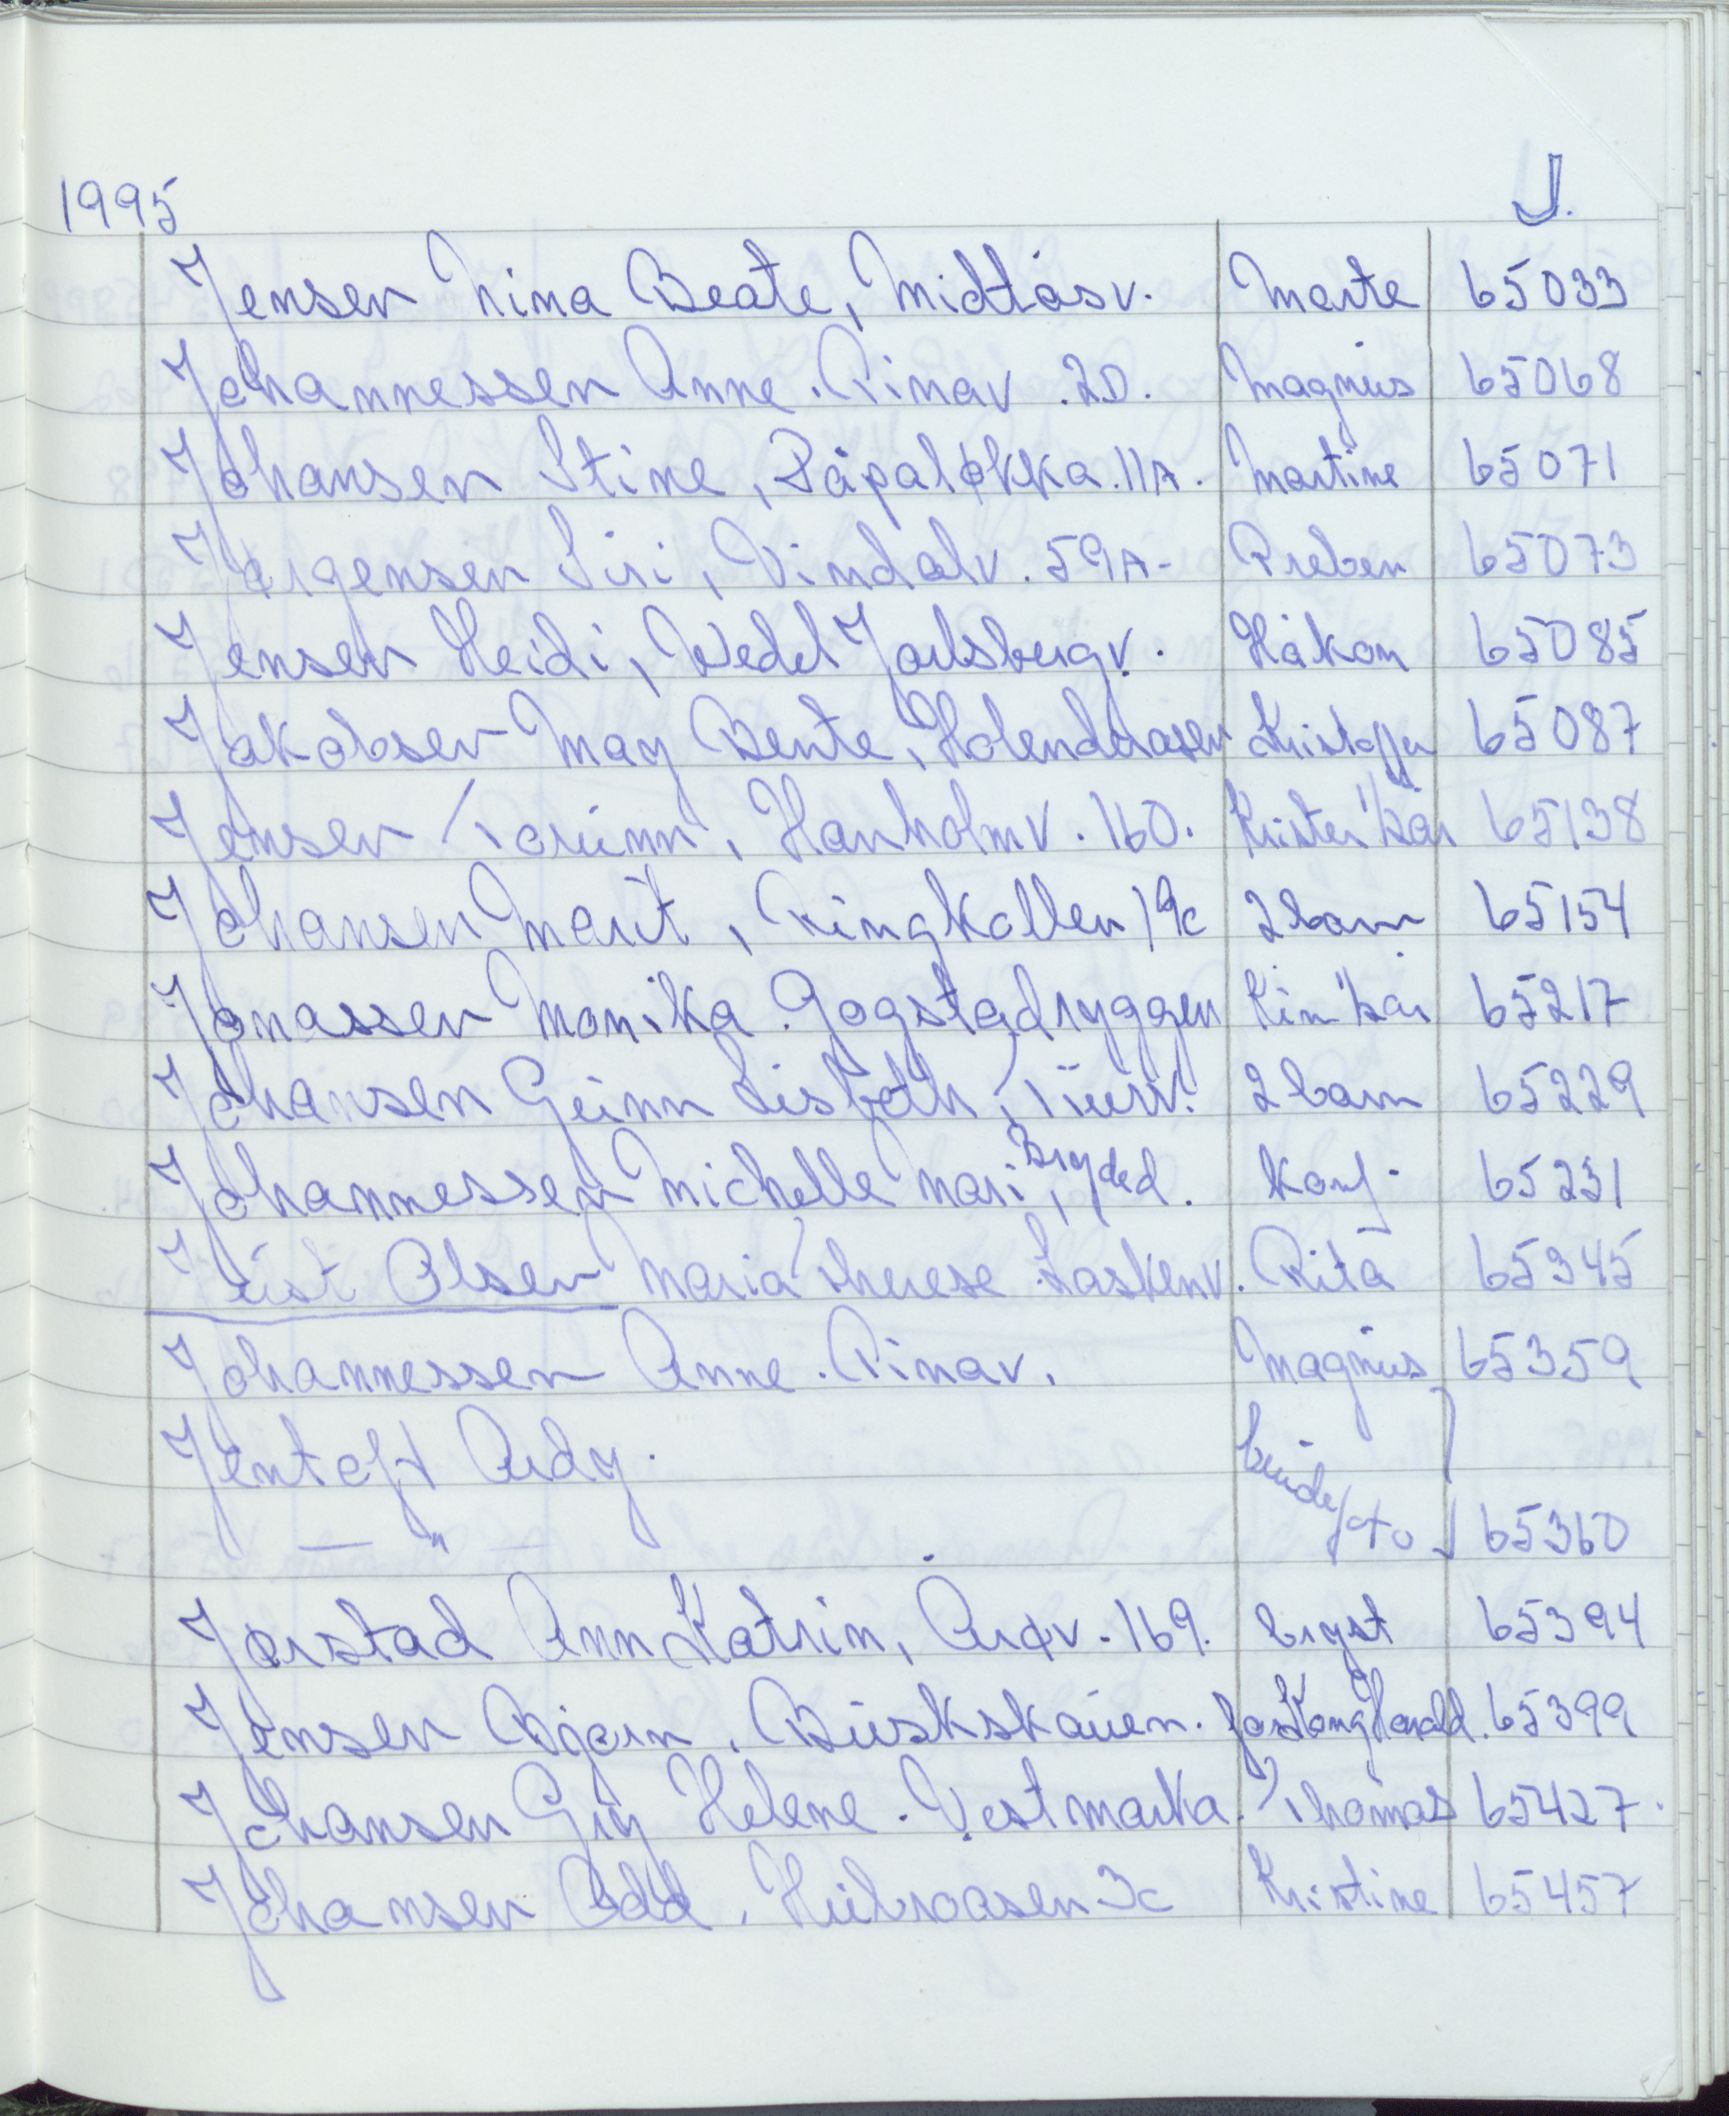 1995 J.
Jensen Nina Beate, Midtåsv. Marte 65033
Johannessen Anne. Rinav. 2D. Magnus 65068
Johansen Stine, Råpaløkka. 11A. Martine 65071
Jørgensen Siri, Vindalv. 59A- Preben 65073
Jensen Heidi, Wedel Jarlsbergv. Håkon 65085
Jakobsen May Bente, Kristoffer 65087
Jensen Torunn, Hanholmv. 160. Krister 1/2år 65138
Johansen Marit, Ringkollen 19c 2 barn 65154
Jonassen Monika. Gogstadryggen Kim 1/2år 65217
Johansen Gunn Lisbeth, 2 barn 65229
Johannessen Michelle Mari, Bryded. Konf. 65231
Just Olsen Maria Therese Laskenv. Rita 65345
Johannessen Anne. Rinav. Magnus 65359
Jentoft Ardy. brude/
— " — foto 65360
Jørstad Ann Katrin, Arøv. 169. bryst 65394
Jensen Bjørn. Buskskauen. Kong Harald. 65399
Johansen Gry Helene. Vestmarka. Thomas 65427.
Johansen Odd. Hubroåsen 3c Kristine 65457